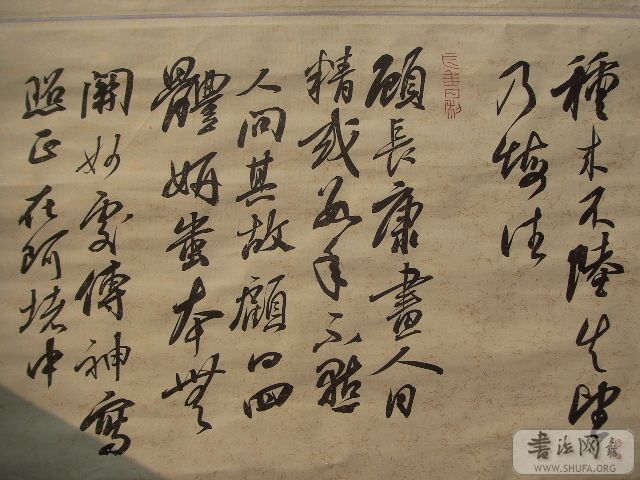 種来不陸失望
乃悔往
顧長康畫人目
精或數年不點
人問其故顧曰四
體妍蚩本無
關妙處傳神寫
照正在阿堵中
書法网
WWW.SHUFA.ORG